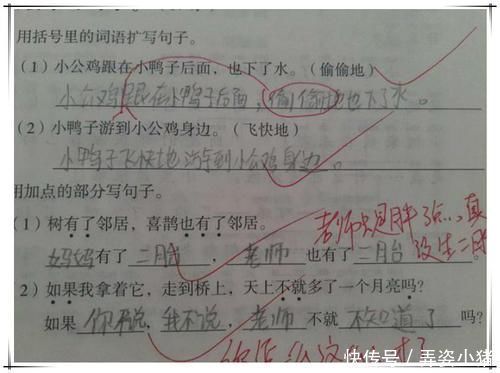 用括号里的词语扩写句子。
(1)小公鸡跟在小鸭子后面,也下了水。(偷偷地)
小公鸡跟在小鸭子后面,偷偷地也下了水。
(2)小鸭子游到小公鸡身边。(飞快地)
小鸭子飞快地游到小公鸡身边。
用加点的部分写句子。
(1)树有了邻居,喜鹊也有了邻居。
老师只是胖了点...真
妈妈有了二胎,老师也有了二月台
没生二胎
2)如果我拿着它,走到桥上,天上不就多了一个月亮吗?
如果你不说,我不说,老师不就不知道了吗?
快传号/弄姿小猪